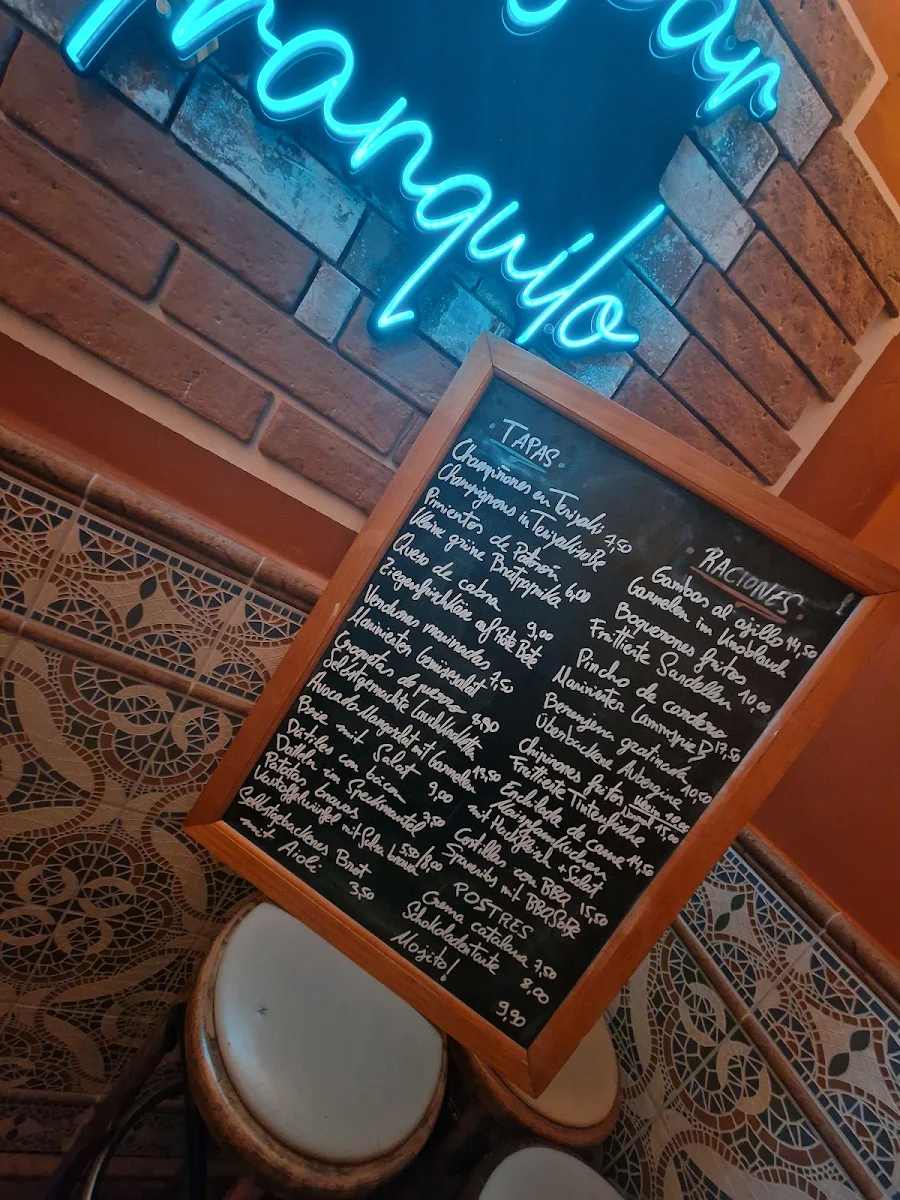 Tranquilo
TAPAS
Champiñones en Teriyaki
Champignons in Teriyakisoße 7,50
Pimientos de Padrón
Kleine grüne Bratpaprika 6,00
Queso de cabra
Ziegenfrischkäse auf Rote Bete 9,00
Verduras marinadas
Mariniertes Gemüsesalat 7,50
Croquetas de puerro
Selbstgemachte Lauchkroketten 8,90
Avocado-Mangosalat mit Garnelen 13,50
Brie mit Salat 9,00
Dátiles con bacon
Datteln im Speckmantel 7,50
Patatas bravas
Kartoffelwürfel mit Salsa brava 5,50/8,00
Selbstgebackenes Brot
mit Aioli 3,50
RACIONES
Gambas al ajillo
Garnelen im Knoblauch 14,50
Boquerones fritos
Frittierte Sardellen 10,00
Pincho de cordero
Marinierter Lammspieß 17,50
Berenjena gratinada
Überbackene Aubergine 10,50
Chipirones fritos
Frittierte Tintenfische 15,00
Enchilada de carne
Maispfannkuchen
mit Hackfleisch + Salat 14,50
Costillas con BBQ
Spareribs mit BBQ Soße 15,50
POSTRES
Crema catalana 7,50
Schokoladentarte 8,00
Mojito! 9,90